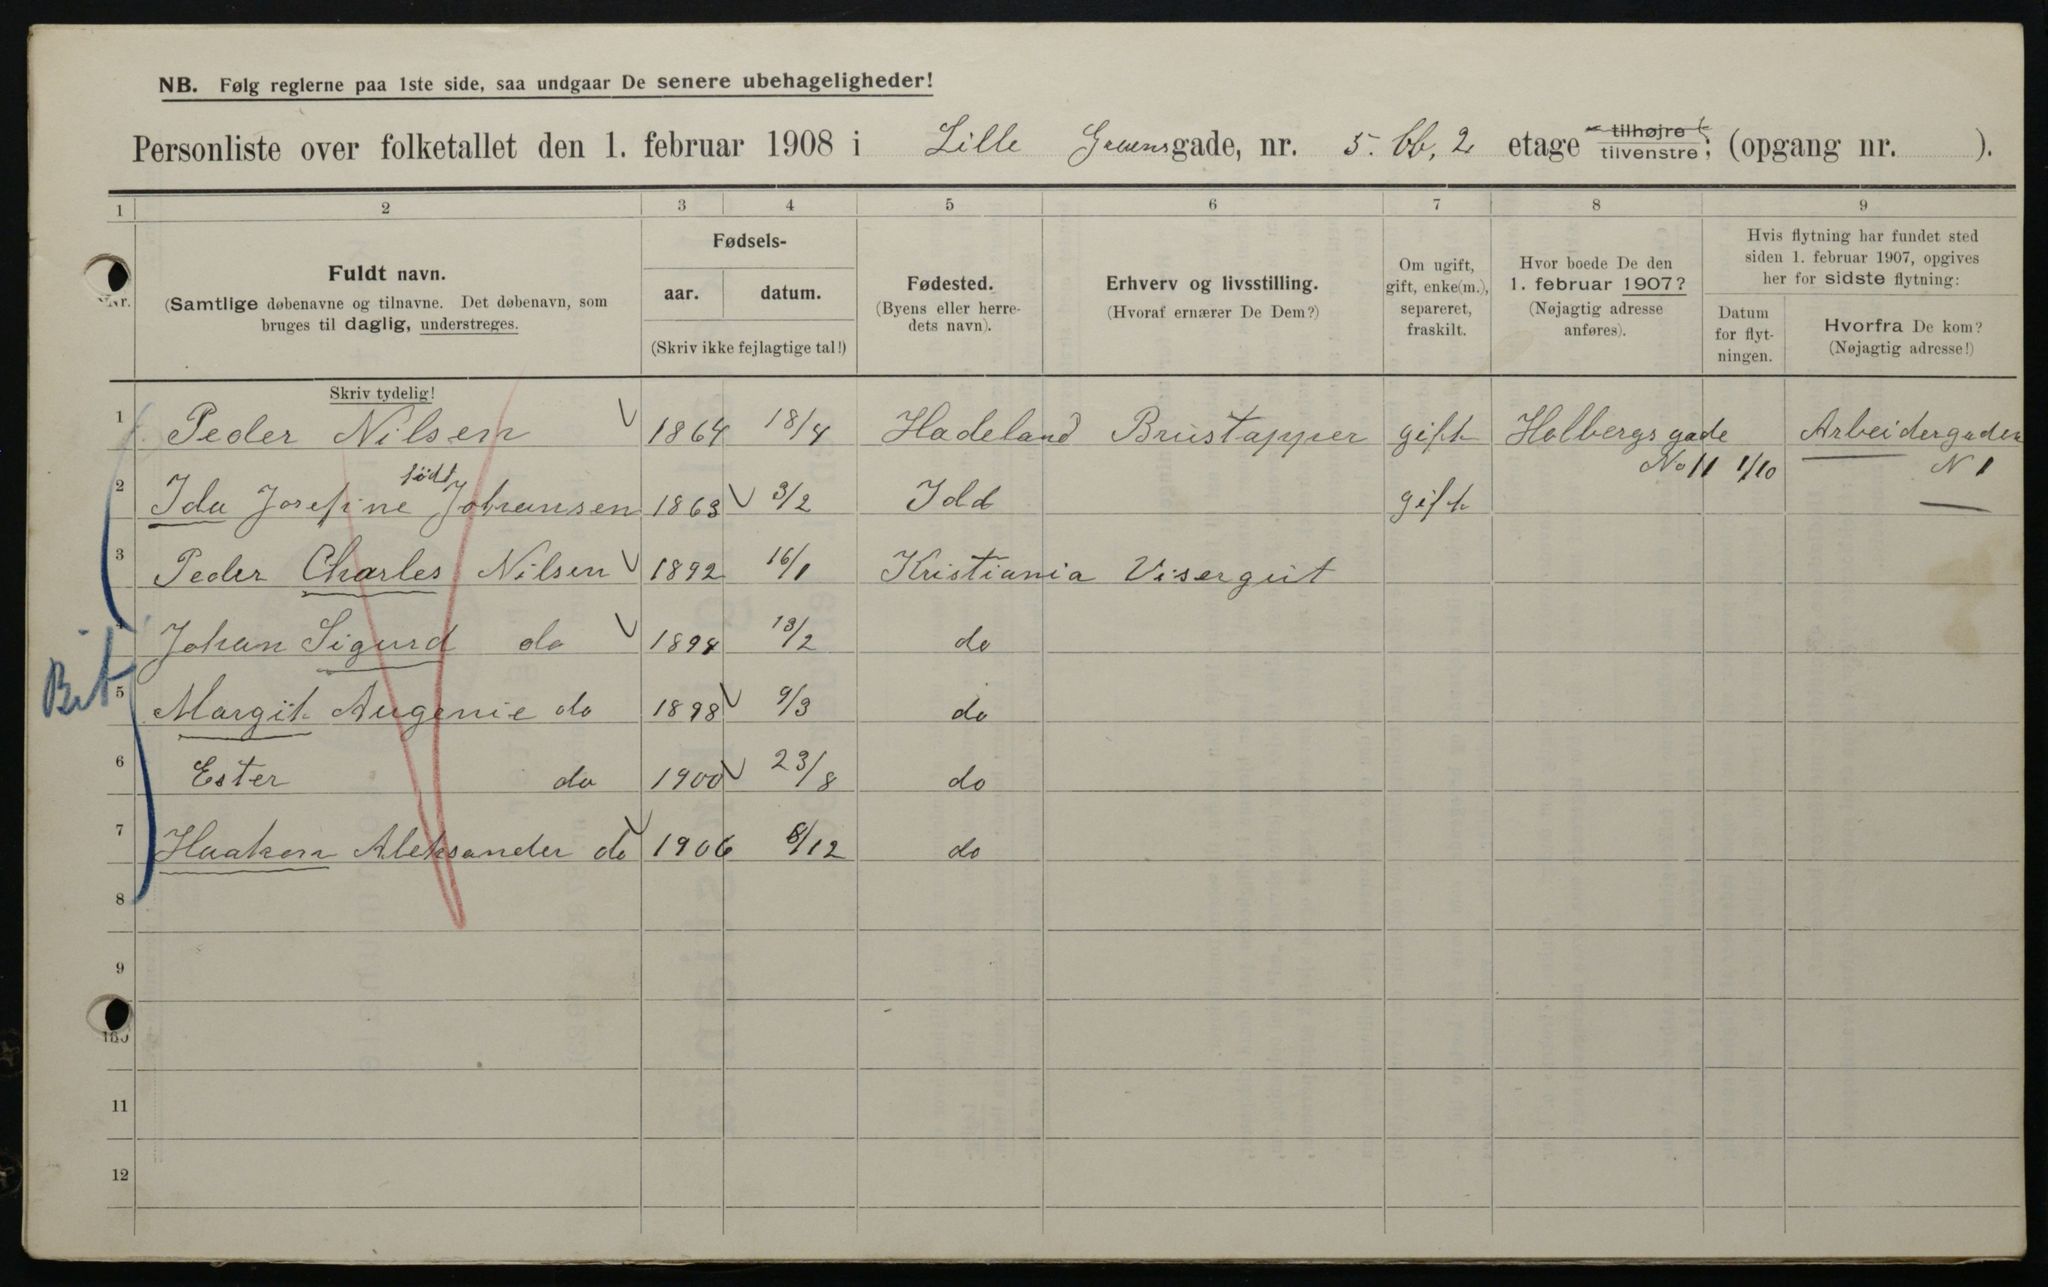 NB. Følg reglerne paa 1ste side, saa undgaar De senere ubehageligheder!
Personliste over folketallet den 1. februar 1908 i Lille Grensgade, nr. 5. bb, 2 etage tilhøjre tilvenstre; (opgang nr. ).
1 2 3 4 5 6 7 8 9
Nr.
Fuldt navn.
(Samtlige døbenavne og tilnavne. Det døbenavn, som
bruges til daglig, understreges.
Skriv tydelig!
Fødsels-
aar. datum.
(Skriv ikke fejlagtige tal!)
Fødested.
(Byens eller herre-
dets navn).
Erhverv og livsstilling.
(Hvoraf ernærer De Dem?)
Om ugift,
gift, enke(m.),
separeret,
fraskilt.
Hvor boede De den
1. februar 1907?
(Nøjagtig adresse
anføres).
Hvis flytning har fundet sted
siden 1. februar 1907, opgives
her for sidste flytning:
Datum
for flyt-
ningen.
Hvorfra De kom?
(Nøjagtig adresse!)
1 Peder Nilsen 1864 18/4 Hadeland Brustapper gift Holbergs gade No 11 1/10 Arbeidergaden N 1
2 Ida Josefine født Johansen 1863 3/2 Idd gift —
3 Peder Charles Nilsen 1892 16/1 Kristiania Visergut
4 Johan Sigurd do 1894 13/2 do
5 Margit Augenie do 1898 9/3 do
6 Ester do 1900 23/8 do
7 Haakon Aleksander do 1906 8/12 do
8
9
10
11
12